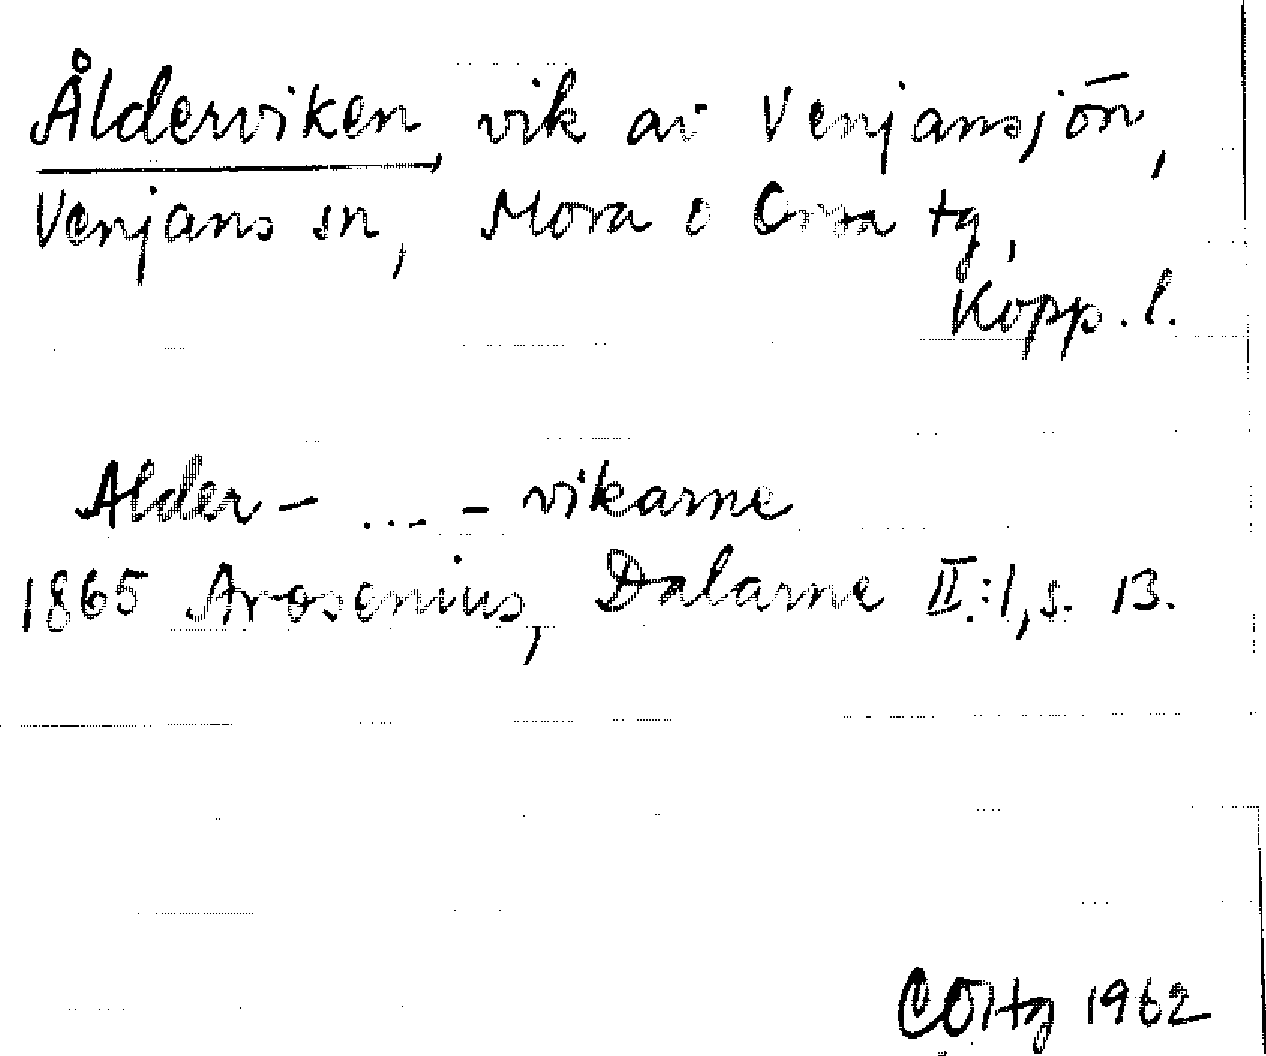 Ålderviken, vik av Venjansjön,
Venjans sn, Mora o Orsa tg,
Kopp. l.
Alder- ... - vikarne
1865 Arosenius, Dalarne II:1, s. 13.
1962